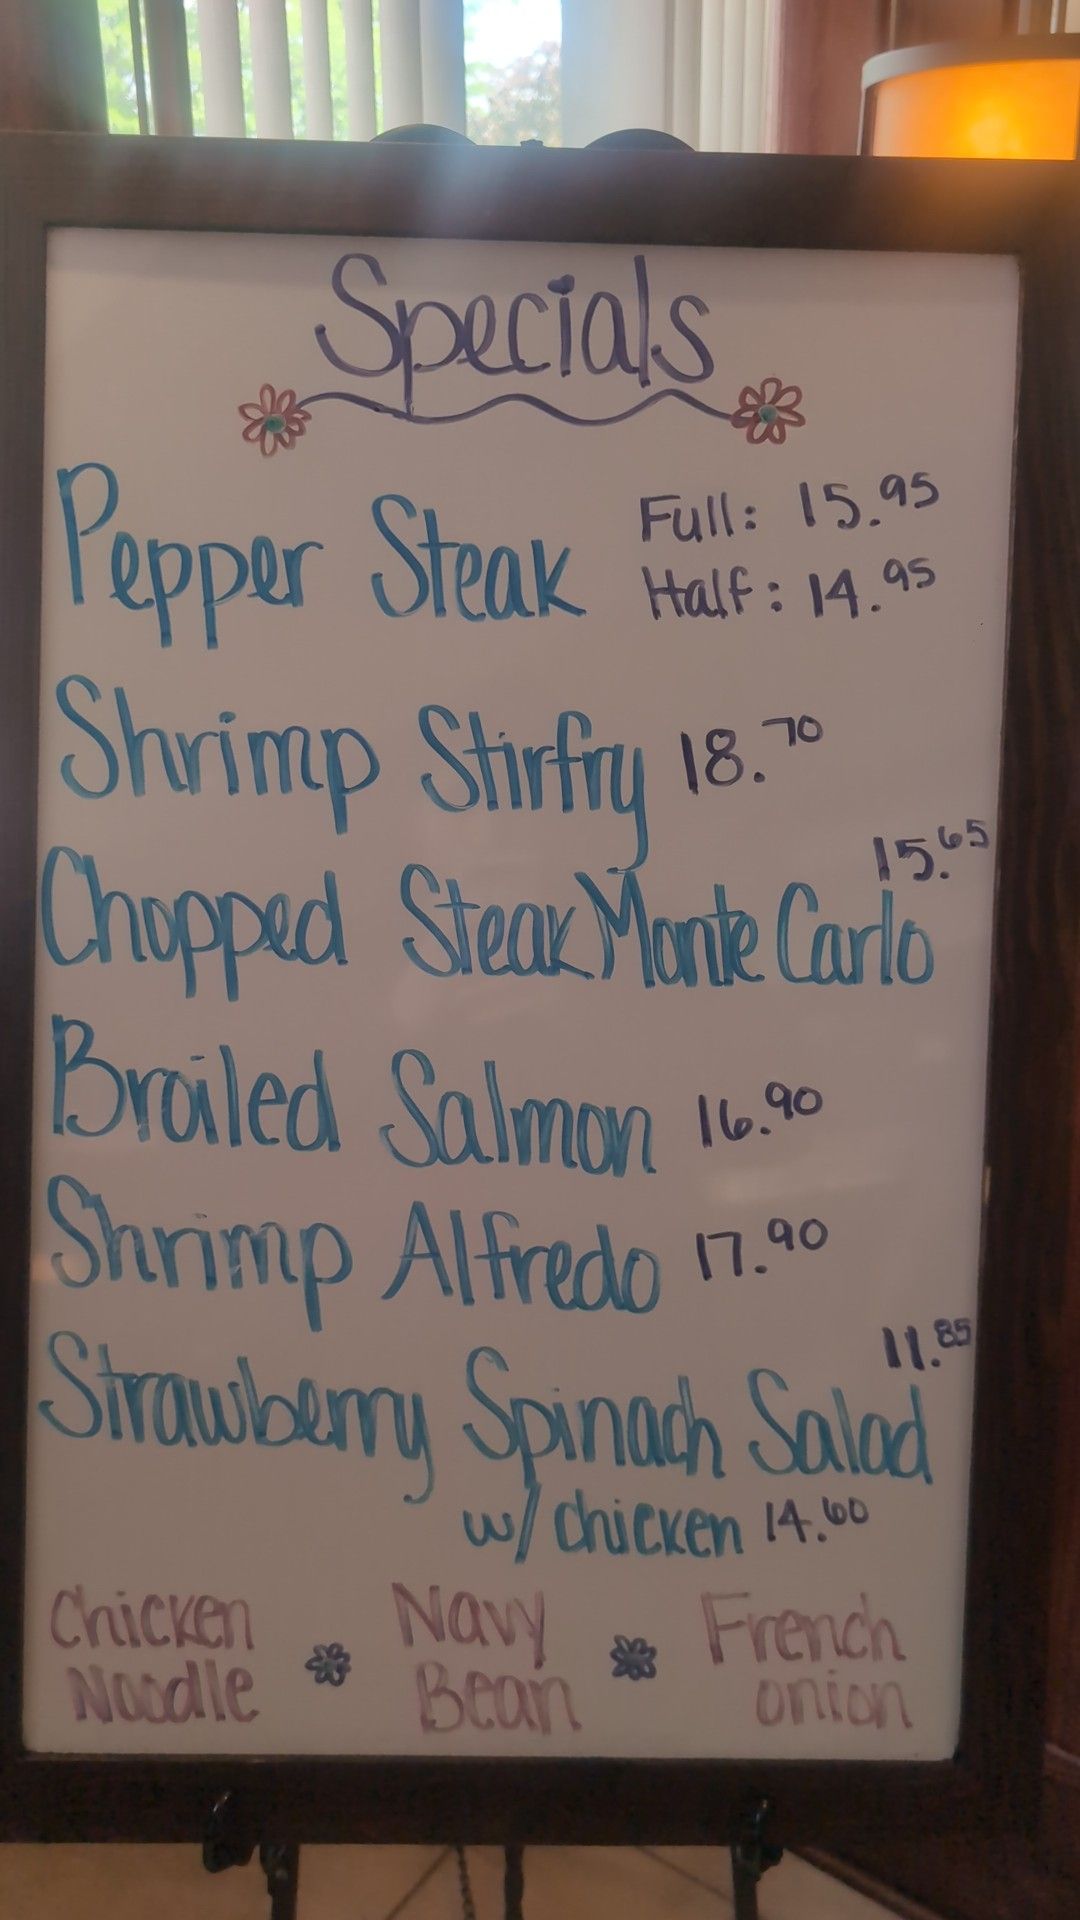 Specials
Pepper Steak Full: 15.95
Half: 14.95
Shrimp Stirfry 18.70
15.65
Chopped Steak Monte Carlo
Broiled Salmon 16.90
Shrimp Alfredo 17.90
11.85
Strawberry Spinach Salad
w/ chicken 14.60
Chicken Navy French
Noodle Bean onion